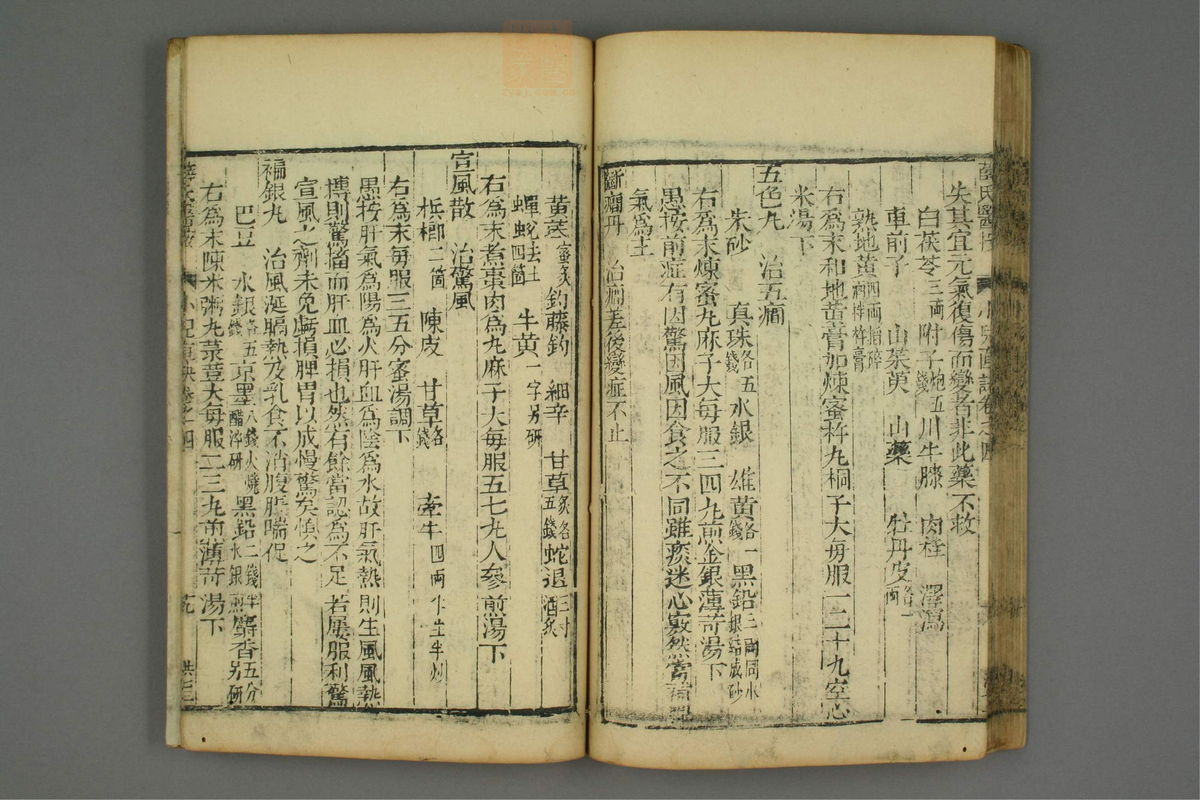 薛氏醫按 小兒直訣卷之四
失其宜元氣復傷而變者非此藥不救
白茯苓三兩附子炮五錢川牛膝 肉桂 澤瀉
車前子 山茱萸 山藥 牡丹皮各一兩
熟地黃四兩掐碎酒拌杵膏
右為末和地黃膏加煉蜜杵丸桐子大每服一二十丸空心
米湯下
五色丸 治五癇
朱砂 真珠各五錢水銀 雄黃各一錢黑鉛三兩同水銀結成砂
右為末煉蜜丸麻子大每服三四丸煎金銀薄荷湯下
愚按前症有因驚因風因食之不同雖痰迷心竅然當補脾
氣為主
斷癇丹 治癇差後變症不止
黃芪蜜炙釣藤鈎 細辛 甘草炙各五錢蛇退三寸酒炙
蟬蛻去土四箇 牛黃一字另研
右為末煮棗肉為丸麻子大每服五七丸人參煎湯下
宣風散 治驚風
梹榔二箇 陳皮 甘草各錢 牽牛四兩半生半炒
右為末每服三五分蜜湯調下
愚按肝氣為陽為火肝血為陰為水故肝氣熱則生風風熱
摶則驚搐而肝血必損也然有餘當認為不足若屢服利驚
宣風之劑未免虧損脾胃以成慢驚矣慎之
褊銀丸 治風涎膈熱及乳食不消腹脹喘促
巴豆 水銀各五錢京墨八錢火燒醋淬研黑鉛二錢半水銀煎麝香五分另研
右為末陳米粥丸菉荳大每服二三丸煎薄荷湯下
薛氏醫按 小兒直訣卷之四